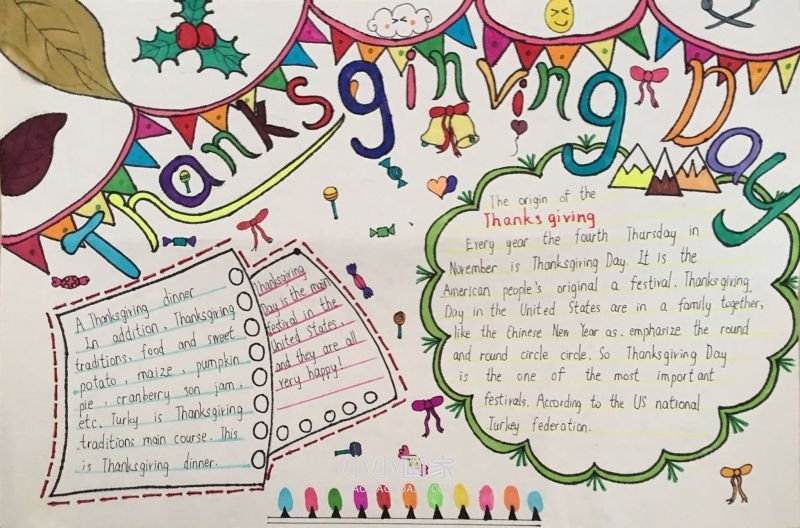 Thanksginving Day
The origin of the
Thanksgiving
Every year the fourth Thursday in
November is Thanksgiving Day. It is the
American people's original a festival. Thanksgiving
Day in the United States are in a family together,
like the Chinese New Year as. emphasize the round
and round circle circle. So Thanksgiving Day
is the one of the most important
festivals. According to the US national
Turkey federation.
A Thanksgiving dinner
In addition, Thanksgiving
traditions, food and sweet
potato, maize, pumpkin
pie, cranberry son jam,
etc. Turky is Thanksgiving
traditions main course. This
is Thanksgiving dinner.
Thanksgiving
Day is the main
festival in the
United States,
and they are all
very happy!
小小画家